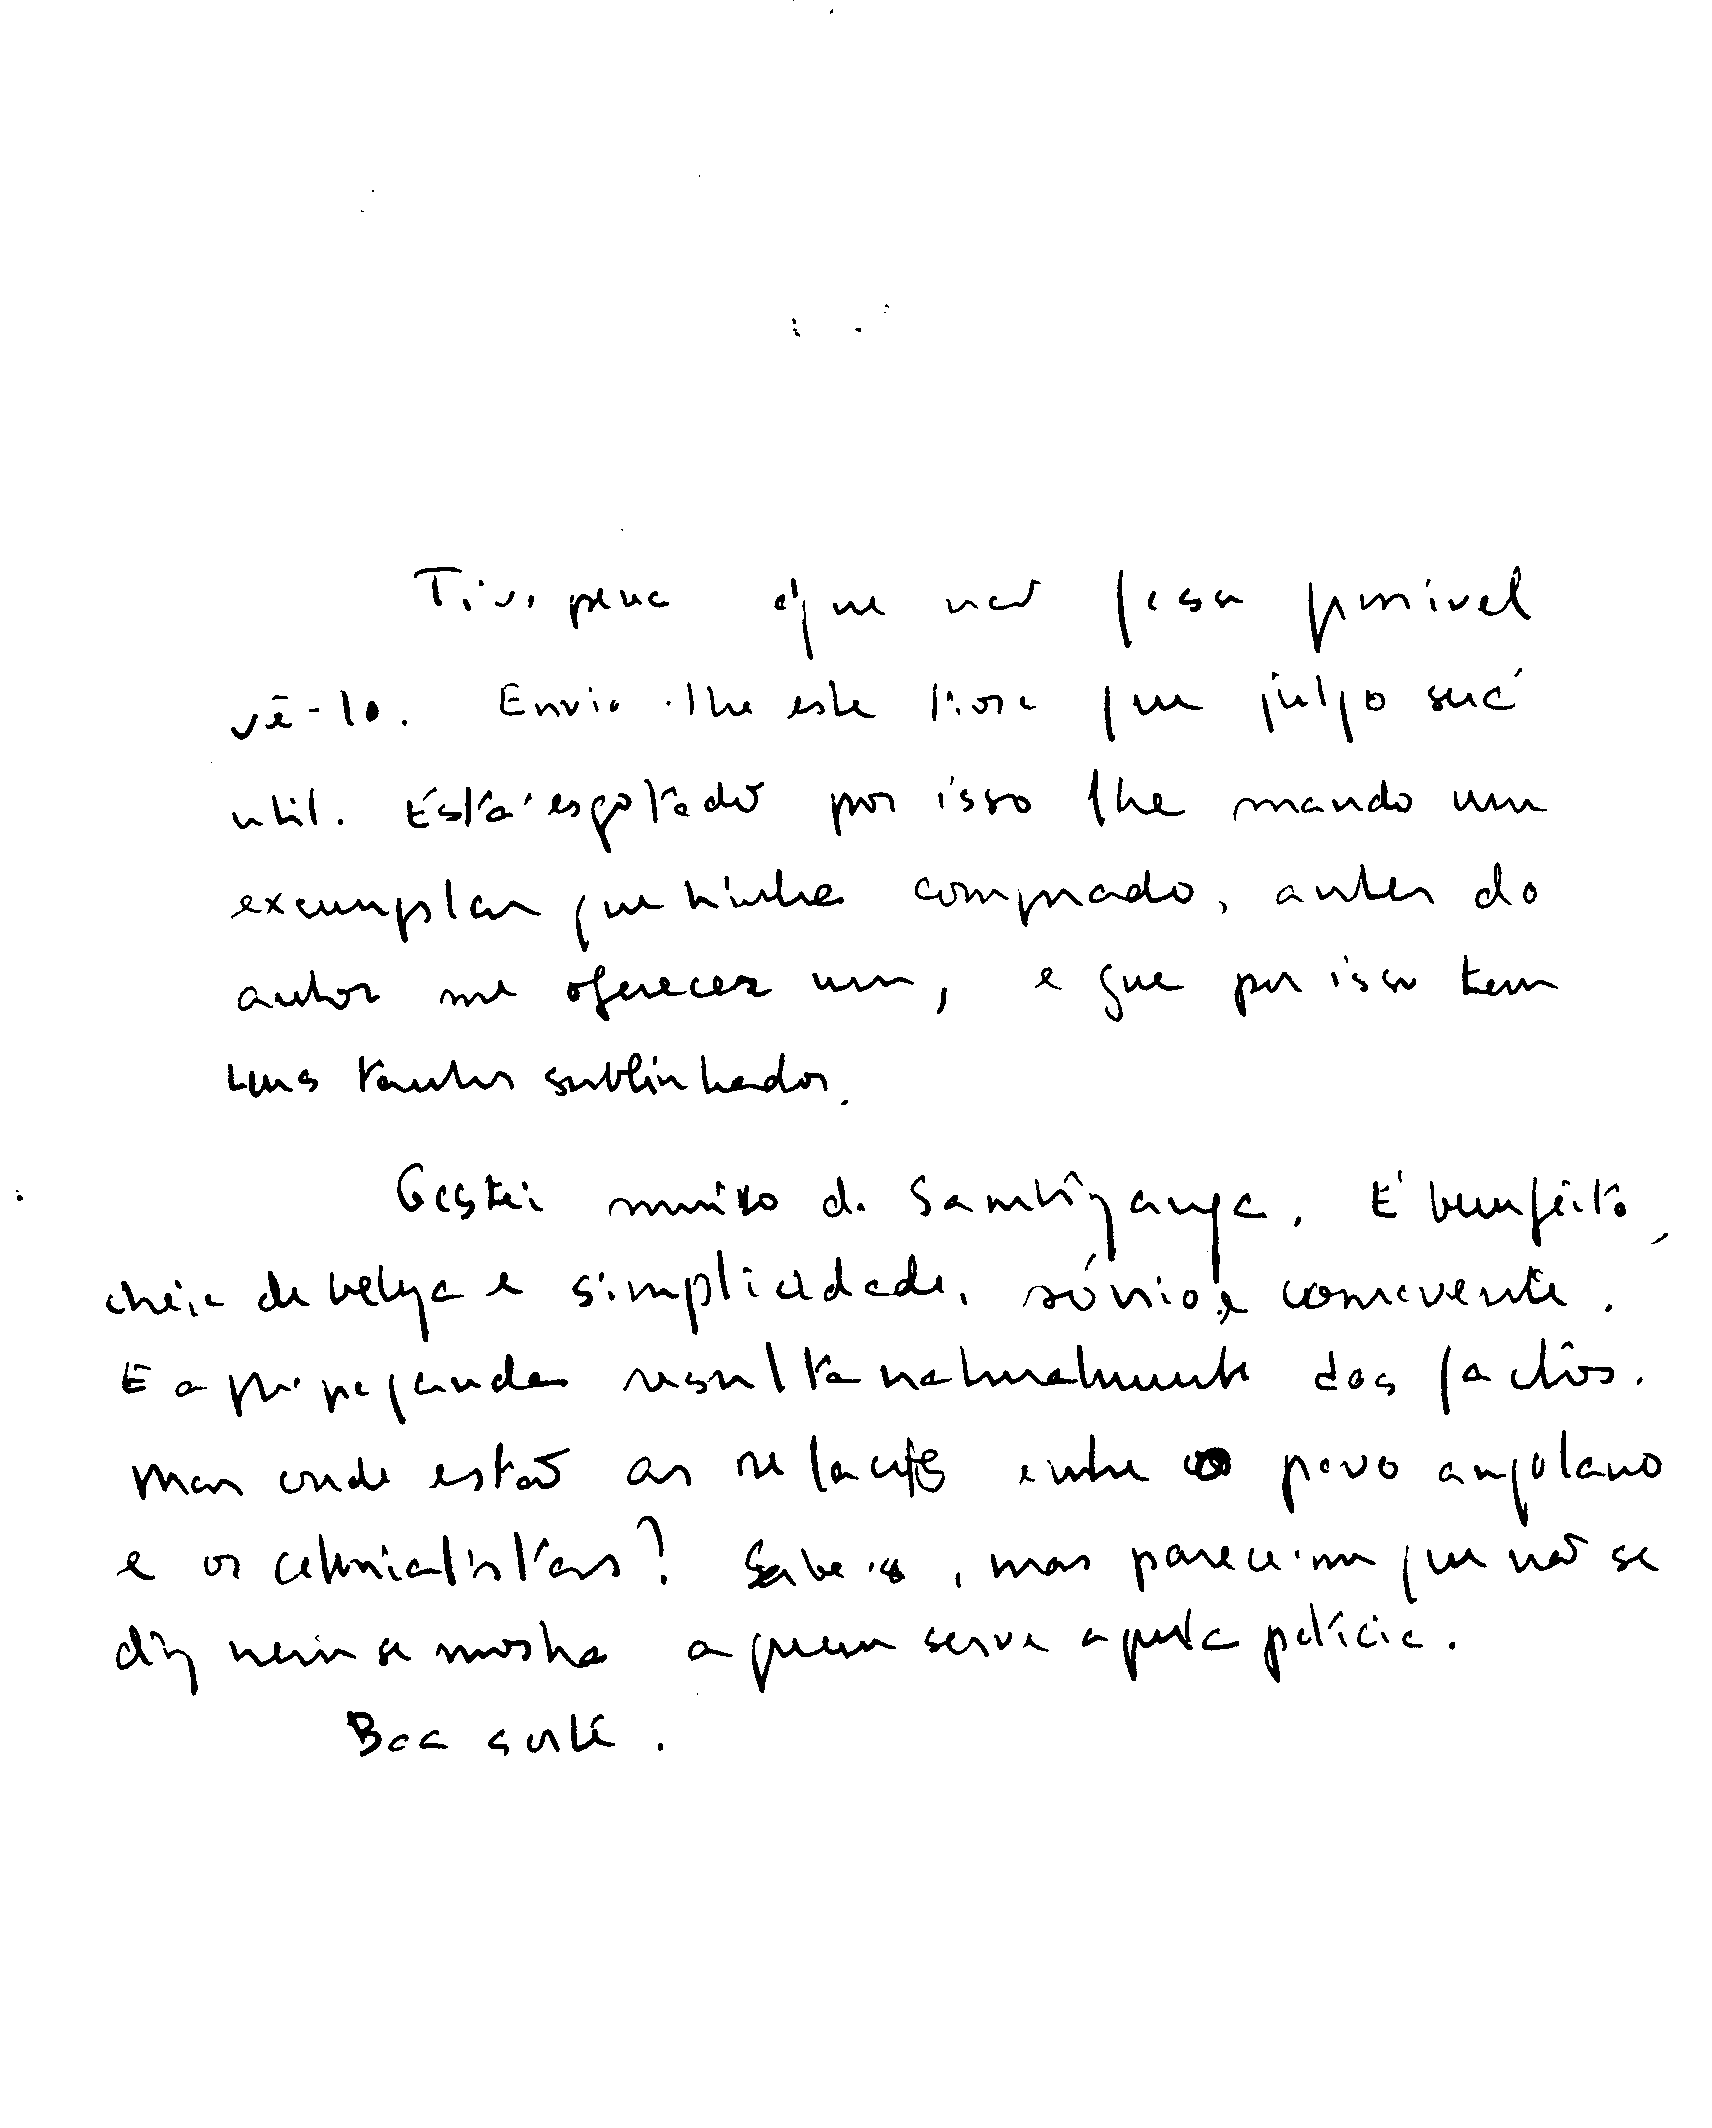 Tive pena que não fosse possível
vê-lo. Envio-lhe este livro que julgo será
util. Está esgotado por isso lhe mando um
exemplar que tinha comprado, antes do
autor me oferecer um, e que por isso tem
uns tantos sublinhados.
Gostei muito de Sambizanga. É bem feito,
cheio de beleza e simplicidade, sóbrio e comovente.
E a propaganda resulta naturalmente dos factos.
Mas onde estão as relações entre o povo angolano
e os colonialistas? Sabe-se, mas parece-me que não se
diz nem se mostra a quem serve aquela polícia.
Boa sorte.